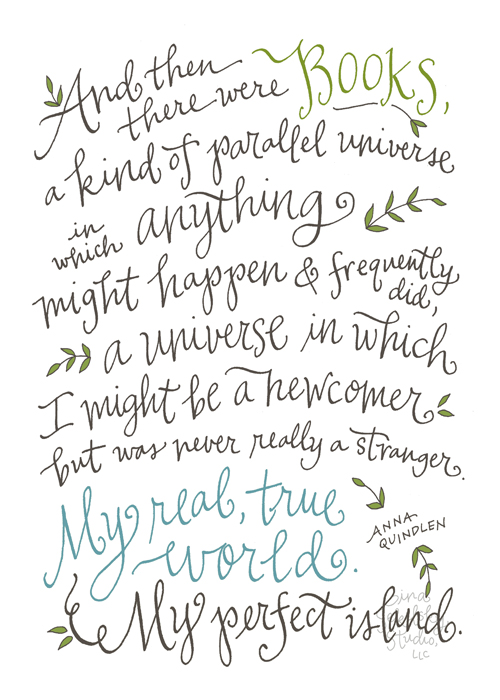 And then
there were Books,
a kind of parallel universe
in
which anything
might happen & frequently
did,
a universe in which
I might be a newcomer
but was never really a stranger.
My real, true
world.
ANNA
QUINDLEN
& My perfect island.
studio,
LLC